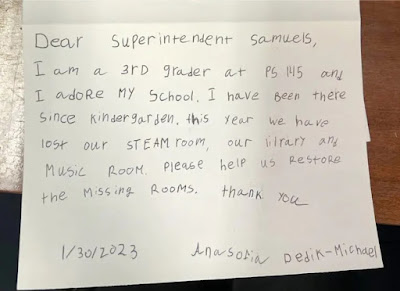 Dear Superintendent Samuels,
I am a 3RD grader at PS 145 and
I adoRe MY School. I have Been there
Since kindergarden. this year we have
lost our STEAM room, our lilrary and
Music Room. Please help us Restore
the Missing Rooms. thank you
1/30/2023 Anasofia Dedik-Michael